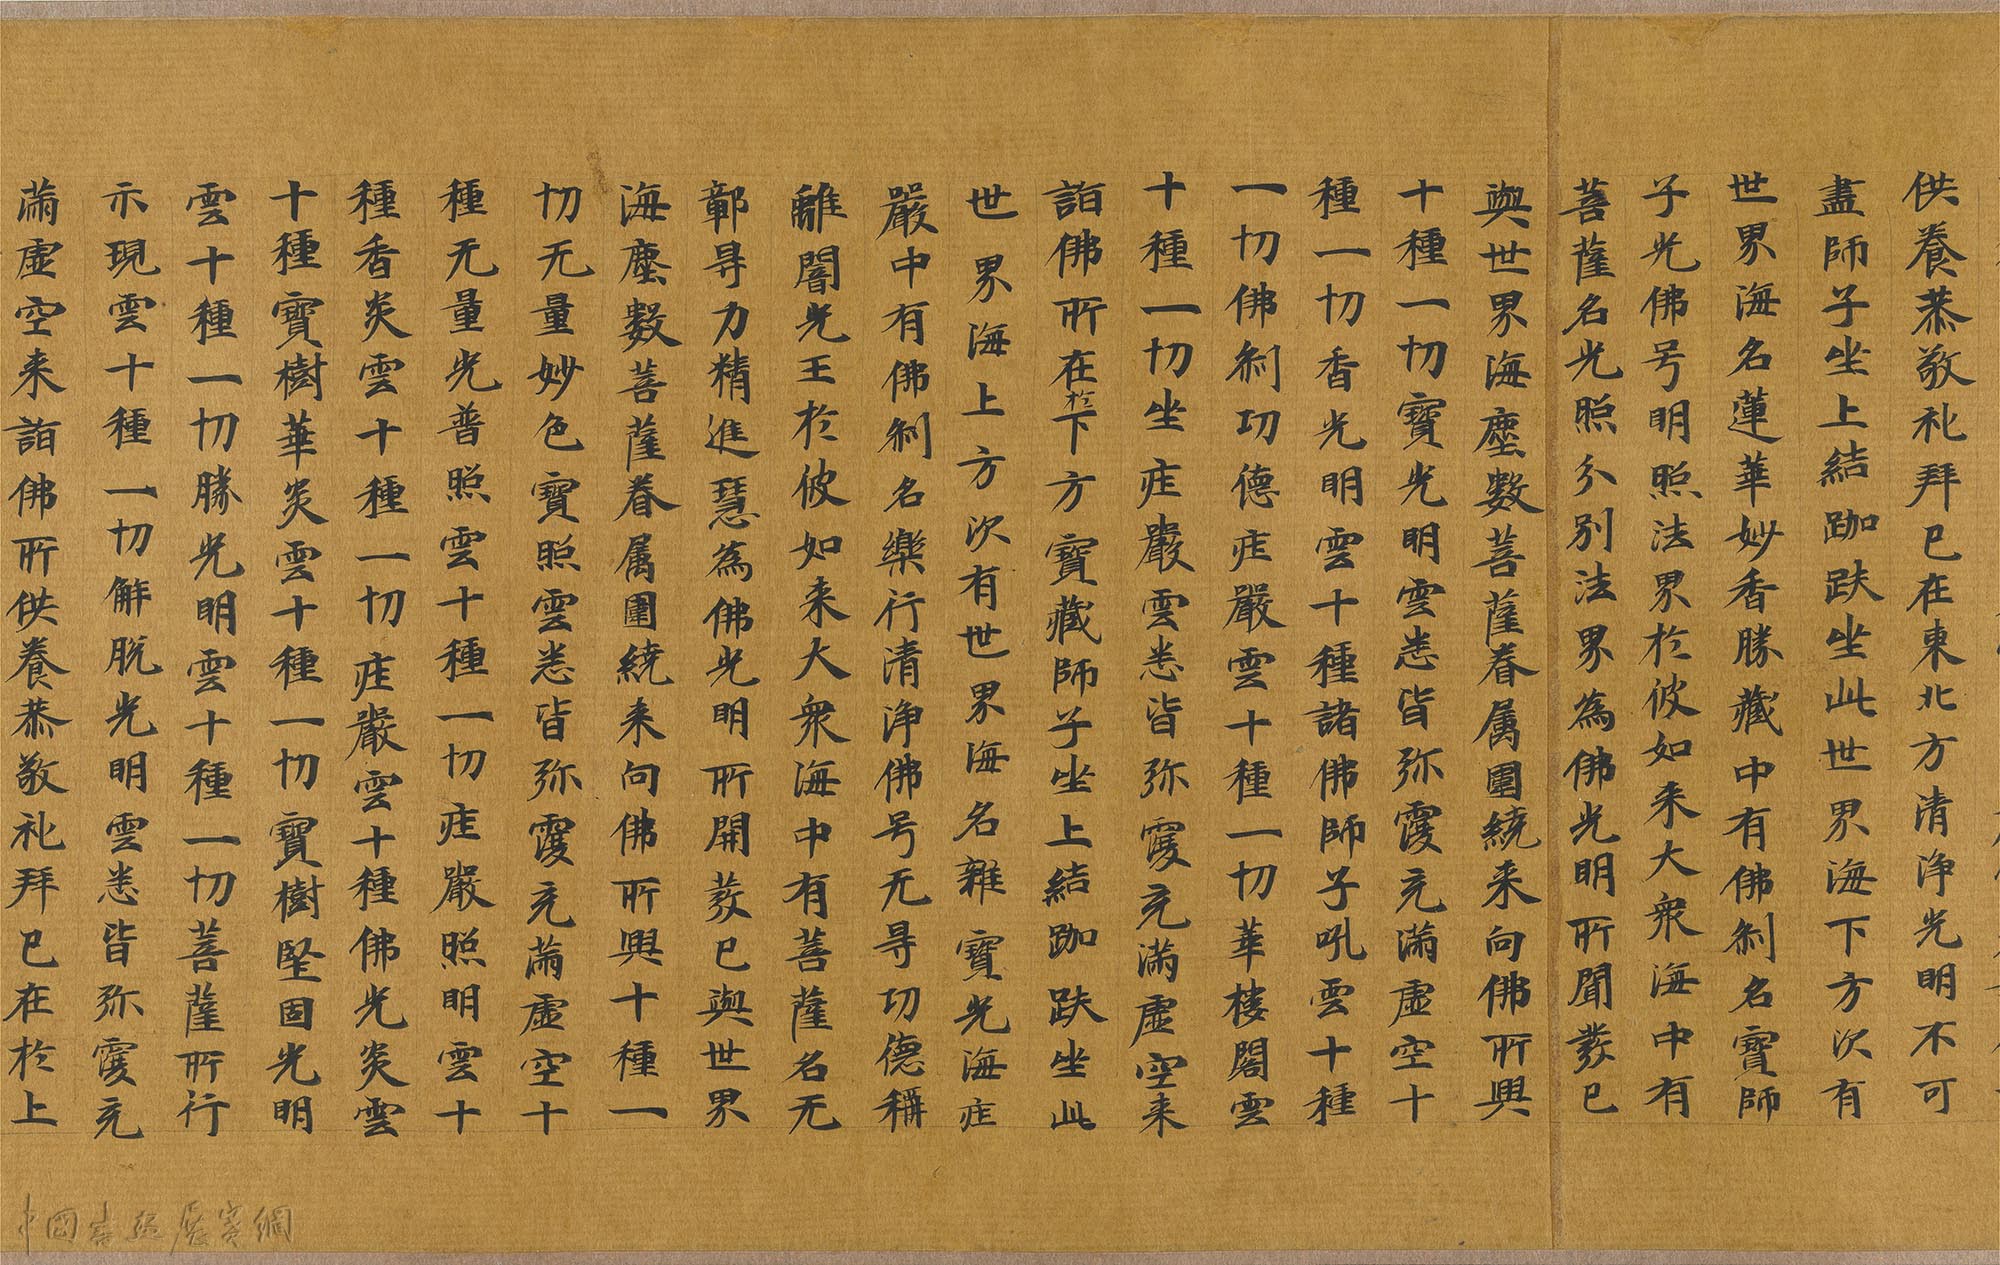 供養恭敬礼拜已在東北方清浄光明不可
盡師子坐上結跏趺坐此世界海下方次有
世界海名蓮華妙香勝藏中有佛刹名寶師
子光佛号明照法界於彼如来大衆海中有
菩薩名光照分别法界為佛光明所聞發已
與世界海塵數菩薩眷属圍繞来向佛所興
十種一切寶光明雲悉皆弥覆充滿虚空十
種一切香光明雲十種諸佛師子吼雲十種
一切佛刹功德庄嚴雲十種一切華樓閣雲
十種一切坐庄嚴雲悉皆弥覆充滿虚空来
詣佛所在於下方寶藏師子坐上結跏趺坐此
世界海上方次有世界海名雜寶光海庄
嚴中有佛刹名樂行清浄佛号无㝵功德稱
離闇光王於彼如来大衆海中有菩薩名无
鄣㝵力精進慧為佛光明所開發已與世界
海塵數菩薩眷属圍繞来向佛所興十種一
切无量妙色寶照雲悉皆弥覆充滿虚空十
種无量光普照雲十種一切庄嚴照明雲十
種香炎雲十種一切庄嚴雲十種佛光炎雲
十種寶樹華炎雲十種一切寶樹堅固光明
雲十種一切勝光明雲十種一切菩薩所行
示現雲十種一切解脱光明雲悉皆弥覆充
滿虚空来詣佛所供養恭敬礼拜已在於上
中國書展賽網